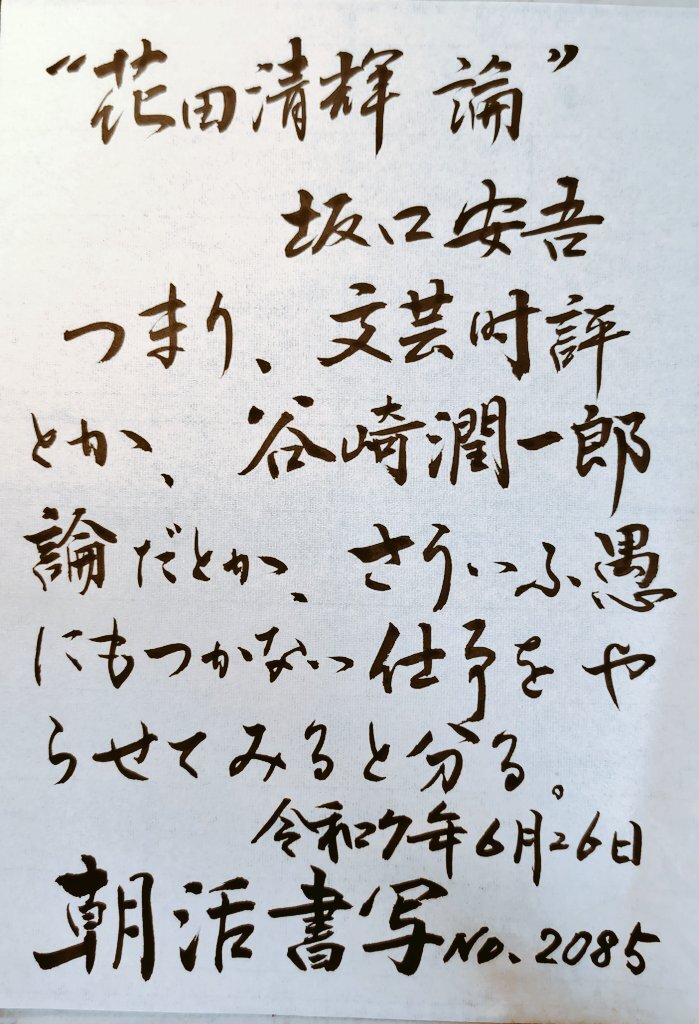 “花田清輝 論”
坂口安吾
つまり、文芸时評
とか、谷崎潤一郎
論だとか、さういふ愚
にもつかない仕事をや
らせてみると分る。
令和7年6月26日
朝活書写No.2085